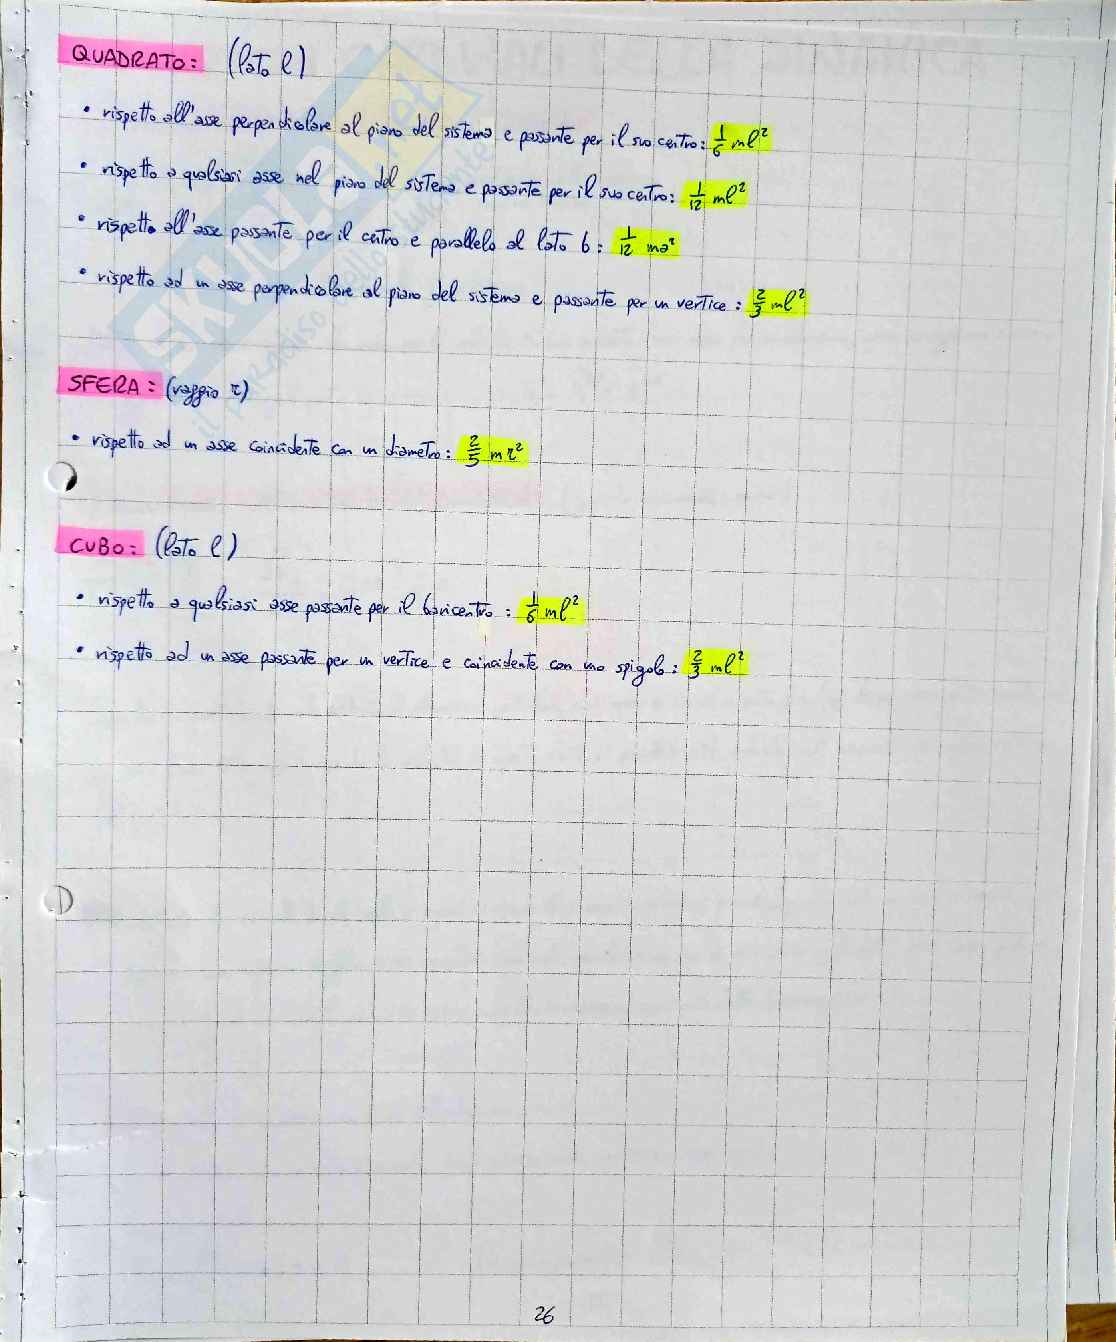 QUADRATO: (lato l)
• rispetto all'asse perpendicolare al piano del sistema e passante per il suo centro: 1/6 ml²
• rispetto a qualsiasi asse nel piano del sistema e passante per il suo centro: 1/12 ml²
• rispetto all'asse passante per il centro e parallelo al lato b: 1/12 ma²
• rispetto ad un asse perpendicolare al piano del sistema e passante per un vertice: 2/3 ml²
SFERA: (raggio r)
• rispetto ad un asse coincidente con un diametro: 2/5 mr²
CUBO: (lato l)
• rispetto a qualsiasi asse passante per il baricentro: 1/6 ml²
• rispetto ad un asse passante per un vertice e coincidente con uno spigolo: 2/3 ml²
26
SKUOLA.net
il paradiso dello studente